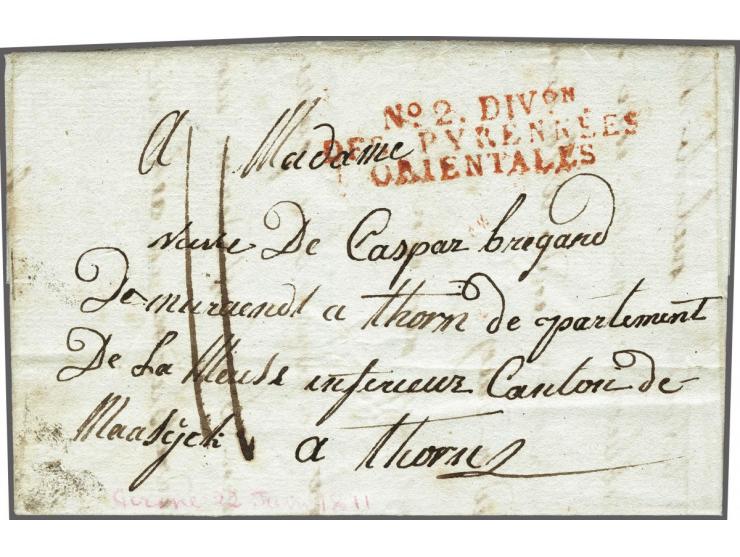 No. 2. DIVon
DES PYRENNÉES
ORIENTALES
A Madame
veuve De Caspar bregand
De muraendl a thorn de partement
De La Meuse inferieur Canton de
Maasÿck a thorn
1811